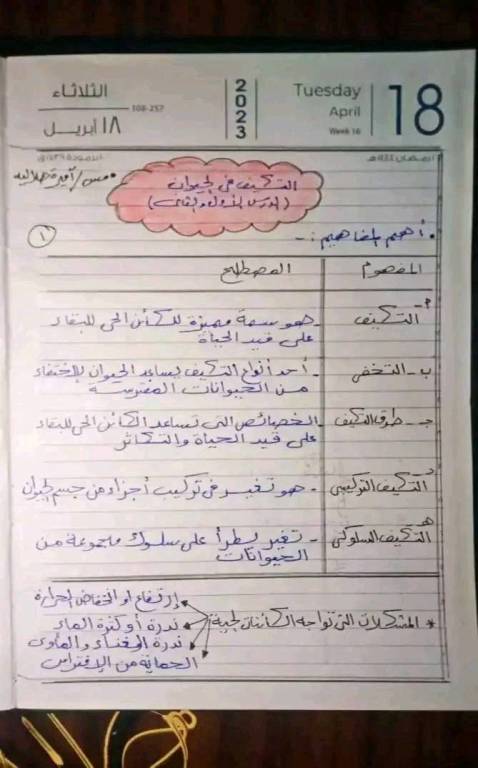 الثلاثاء
108-257
١٨ أبريل
2023
Tuesday
April
Week 16
18
مس/أميرة هلاليه
التكيف في الحيوان
(الدرس الأول والثاني)
١
أهم المفاهيم:-
المفهوم المصطلح
أ- التكيف - هو سمة مميزة للكائن الحي للبقاء
على قيد الحياة
ب- التخفي - أحد أنواع التكيف يساعد الحيوان للإختفاء
من الحيوانات المفترسة
جـ- طرق التكيف - الخصائص التي تساعد الكائن الحي للبقاء
على قيد الحياة والتكاثر
د- التكيف التركيبي - هو تغير في تركيب أجزاء من جسم الحيوان
هـ- التكيف السلوكي - تغير يطرأ على سلوك مجموعة من
الحيوانات
* المشكلات التي تواجه الكائنات الحية
إرتفاع او انخفاض الحرارة
ندرة أو كثرة الماء
ندرة الغذاء والمأوى
الحماية من الإفتراس